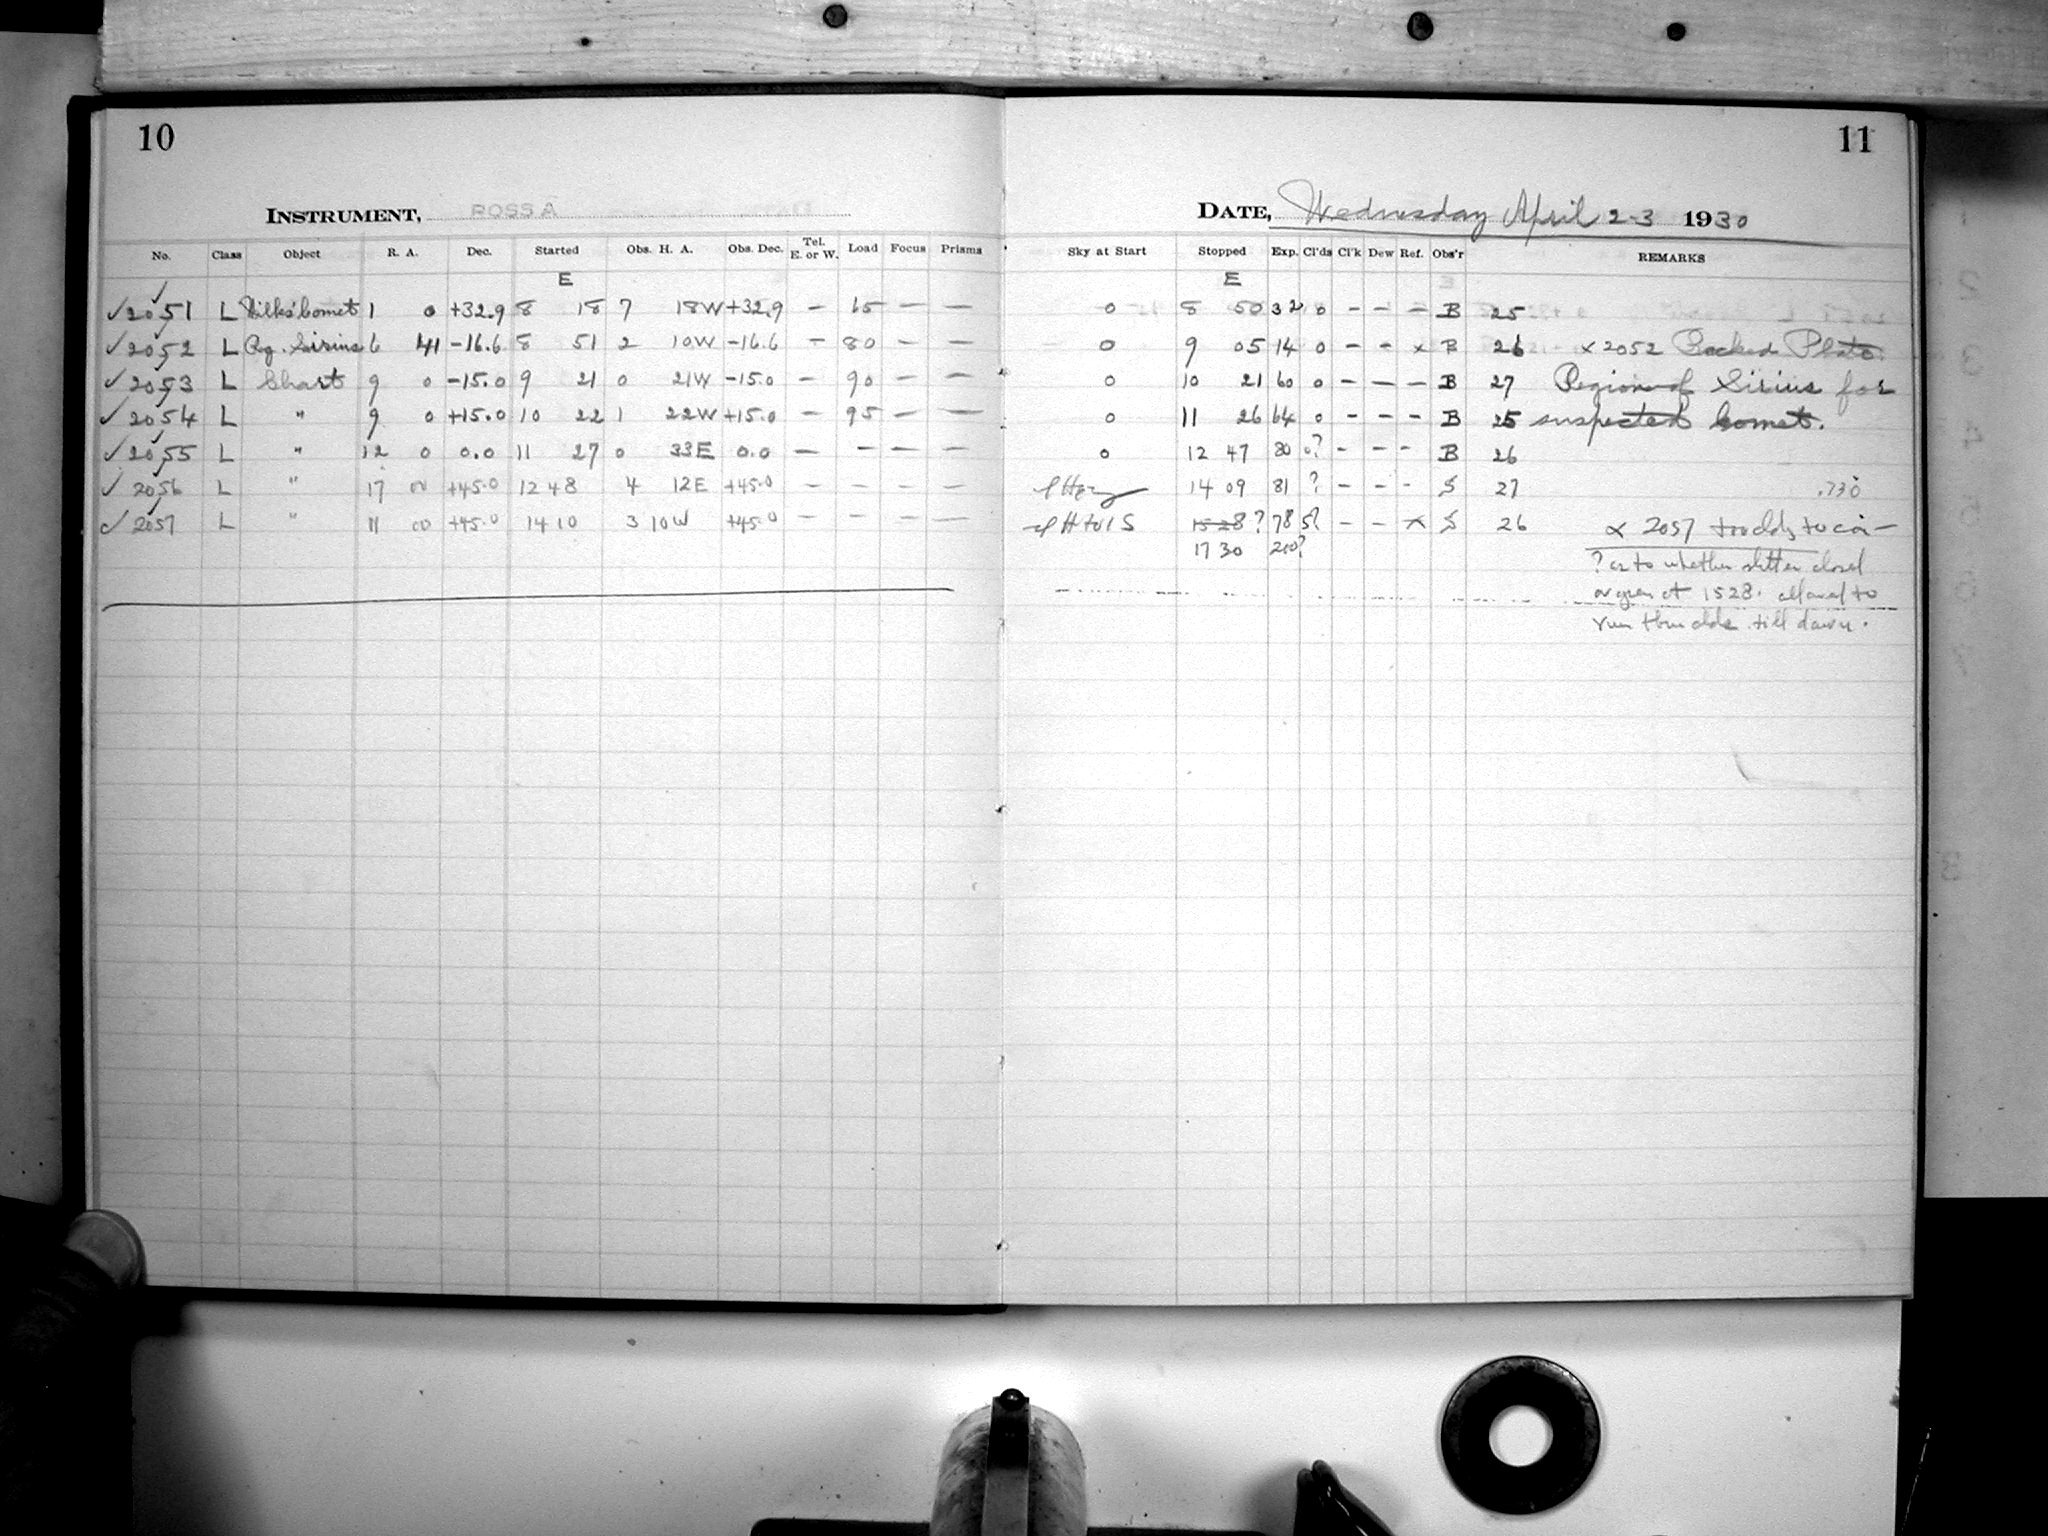 10
11
INSTRUMENT, ROSS A
DATE, Wednesday April 2-3 1930
No. Class Object R. A. Dec. Started Obs. H. A. Obs. Dec. Tel. E. or W. Load Focus Prisms Sky at Start Stopped Exp. Cl'ds Cl'k Dew Ref. Obs'r REMARKS
E E
✓ 2051 L Wilk's Comet 1 0 +32.9 8 18 7 18W +32.9 — 65 — — 0 8 50 32 0 — — — B 25
✓ 2052 L Rg. Sirius 6 41 -16.6 8 51 2 10W -16.6 — 80 — — 0 9 05 14 0 — — x B 26 x 2052 Backed Plate.
✓ 2053 L Chart 9 0 -15.0 9 21 0 21W -15.0 — 90 — — 0 10 21 60 0 — — — B 27 Region of Sirius for
✓ 2054 L " 9 0 +15.0 10 22 1 22W +15.0 — 95 — — 0 11 26 64 0 — — — B 25 suspected Comet.
✓ 2055 L " 12 0 0.0 11 27 0 33E 0.0 — — — — 0 12 47 80 0? — — — B 26
✓ 2056 L " 17 00 +45.0 12 48 4 12E +45.0 — — — — 14 09 81 ? — — — S 27 .730
✓ 2057 L " 11 00 +45.0 14 10 3 10W +45.0 — — — — 15 28? 78 5? — — x S 26 x 2057
17 30 200?
? as to whether shutter closed
or open at 1528. allowed to
run thru clds till dawn.